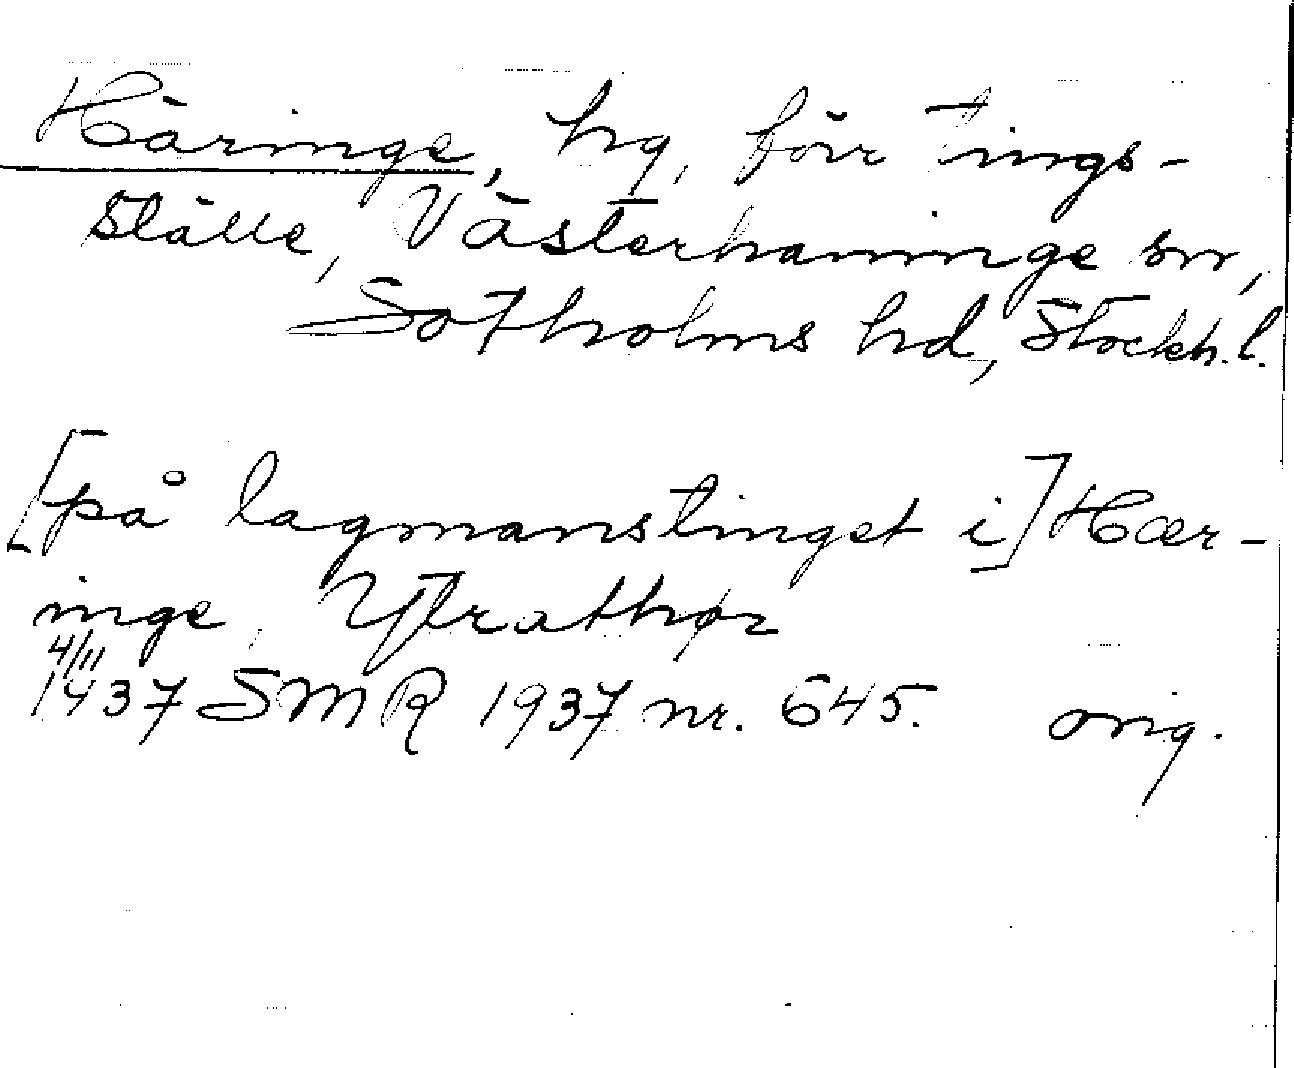 Häringe, hg, förr tings-
ställe, Västerhaninge sn,
Sotholms hd, Stockh. l.
[på lagmanstinget i] Hær-
inge, Ytrathør
4/11
1437 SMR 1937 nr. 645. orig.